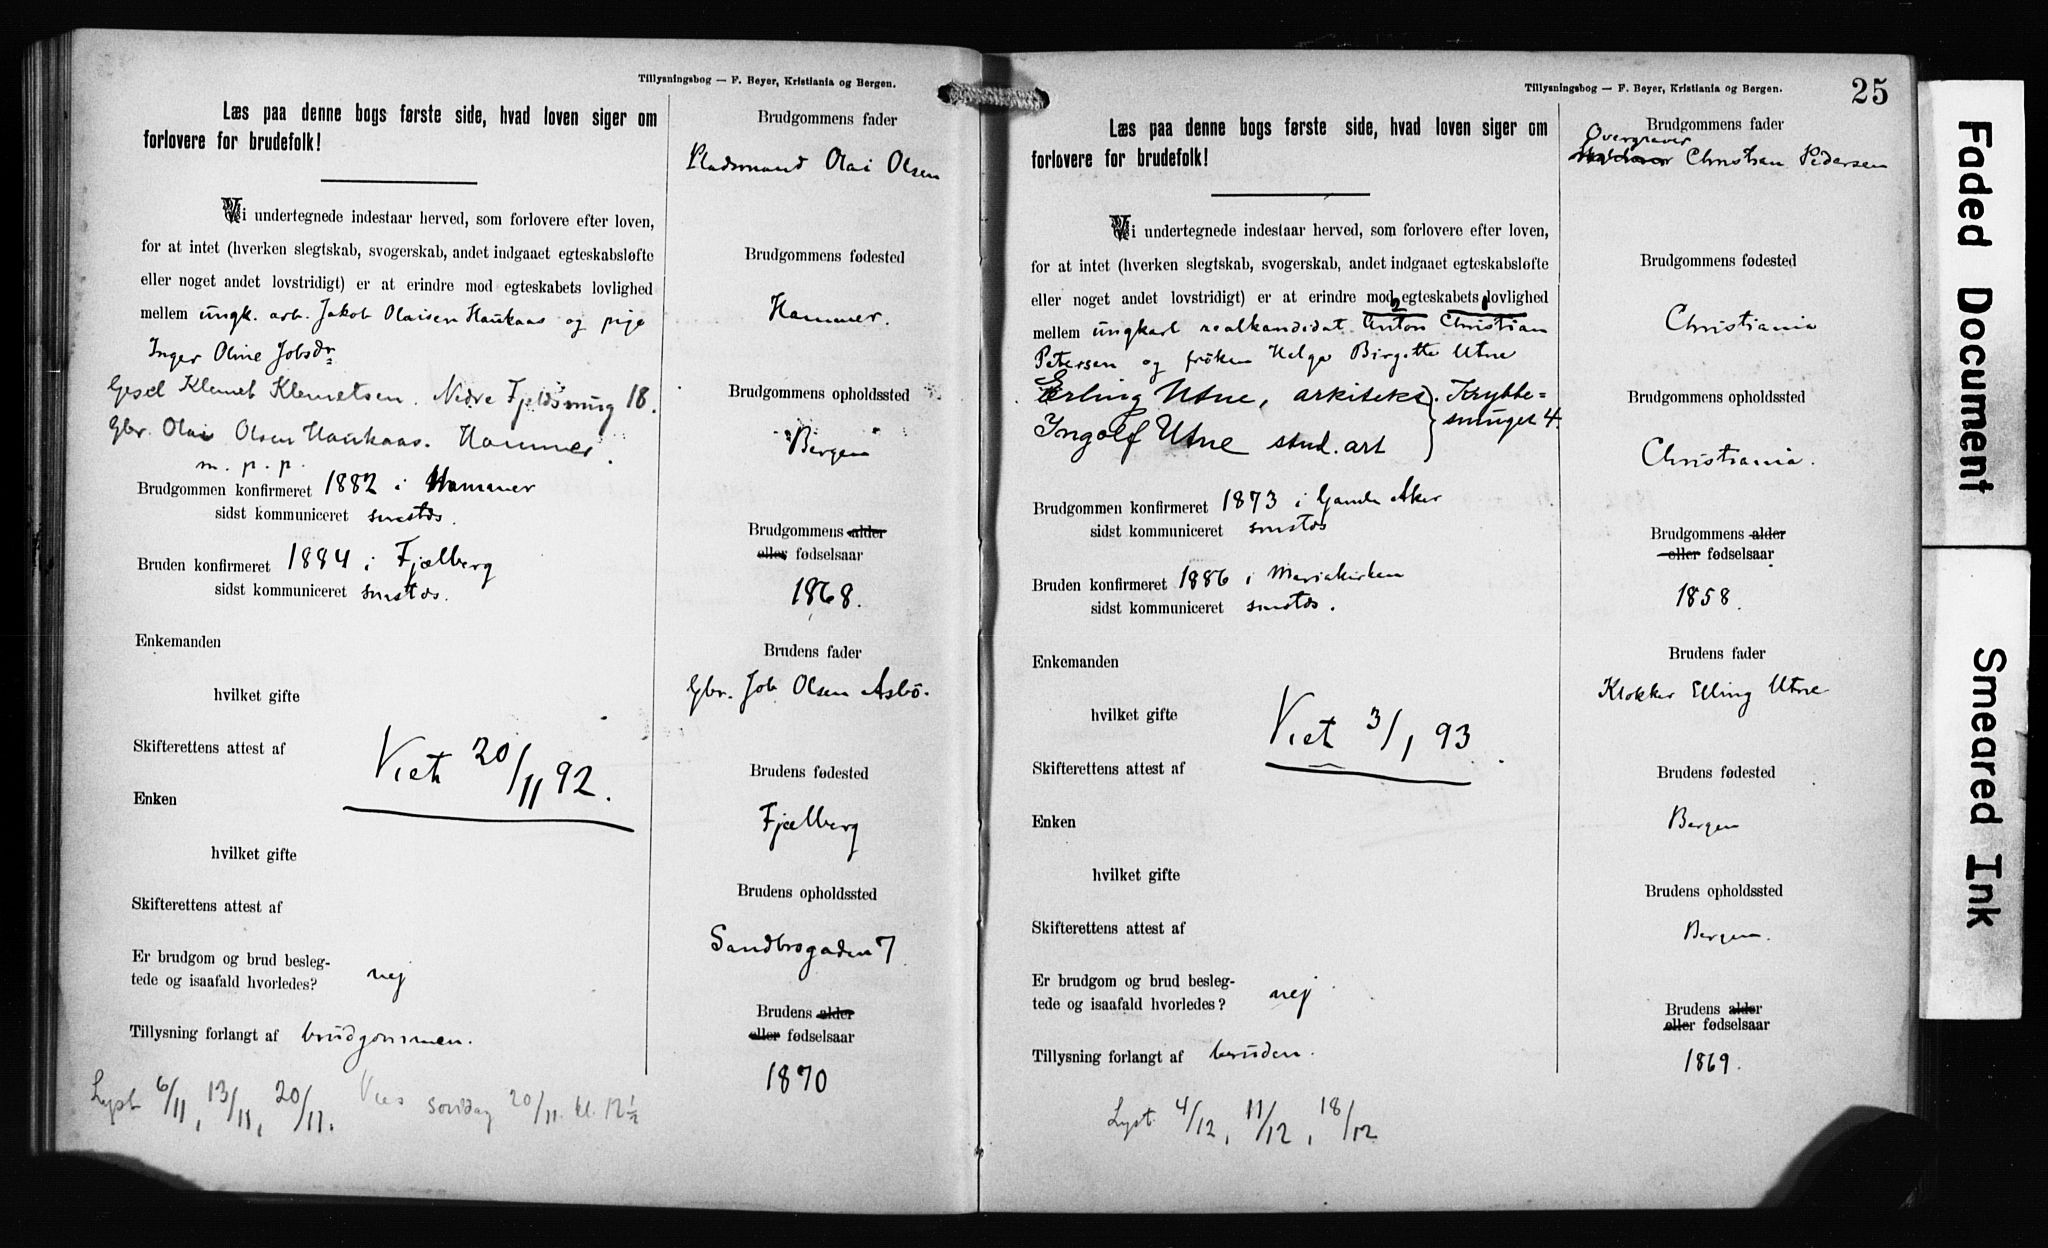 Tillysningsbog — F. Beyer, Kristiania og Bergen.
Læs paa denne bogs første side, hvad loven siger om
forlovere for brudefolk!
Vi undertegnede indestaar herved, som forlovere efter loven,
for at intet (hverken slegtskab, svogerskab, andet indgaaet egteskabsløfte
eller noget andet lovstridigt) er at erindre mod egteskabets lovlighed
mellem ungk. arb. Jakob Olaisen Haukaas og pige
Inger Oline Jobsdr
Gesel Klemet Klemetsen. Nedre Fjeldsmug 18.
Gbr. Olai Olsen Haukaas. Hammer.
m. p. p.
Brudgommen konfirmeret 1882 i Hammer
sidst kommuniceret smstds.
Bruden konfirmeret 1884 i Fjælberg
sidst kommuniceret smstds.
Enkemanden
hvilket gifte
Skifterettens attest af
Viet 20/11 92.
Enken
hvilket gifte
Skifterettens attest af
Er brudgom og brud besleg-
tede og isaafald hvorledes? nej
Tillysning forlangt af brudgommen.
Lyst 6/11, 13/11, 20/11. Vies søndag 20/11 kl. 12 1/2
Brudgommens fader
Pladsmand Olai Olsen
Brudgommens fødested
Hammer.
Brudgommens opholdssted
Bergen
Brudgommens alder
eller fødselsaar
1868.
Brudens fader
Gbr. Job Olsen Asbö.
Brudens fødested
Fjælberg
Brudens opholdssted
Sandbrogaden 7
Brudens alder
eller fødselsaar
1870
Tillysningsbog — F. Beyer, Kristiania og Bergen.
25
Læs paa denne bogs første side, hvad loven siger om
forlovere for brudefolk!
Vi undertegnede indestaar herved, som forlovere efter loven,
for at intet (hverken slegtskab, svogerskab, andet indgaaet egteskabsløfte
eller noget andet lovstridigt) er at erindre mod egteskabets lovlighed
2 1
mellem ungkarl realkandidat Anton Christian
Petersen og fröken Helga Birgitte Utne
Erling Utne, arkitekt. Krybbe-
smuget 4.
Ingolf Utne stud. art
Brudgommen konfirmeret 1873 i Gamle Aker
sidst kommuniceret smstds
Bruden konfirmeret 1886 i Mariakirken
sidst kommuniceret smstds.
Enkemanden
hvilket gifte
Viet 3/1 93
Skifterettens attest af
Enken
hvilket gifte
Skifterettens attest af
Er brudgom og brud besleg-
tede og isaafald hvorledes? nej
Tillysning forlangt af bruden.
Lyst 4/12, 11/12, 18/12
Brudgommens fader
Overgraver
Christian Pedersen
Brudgommens fødested
Christiania
Brudgommens opholdssted
Christiania.
Brudgommens alder
eller fødselsaar
1858.
Brudens fader
Klokker Elling Utne
Brudens fødested
Bergen
Brudens opholdssted
Bergen.
Brudens alder
eller fødselsaar
1869.
Faded Document
Smeared Ink